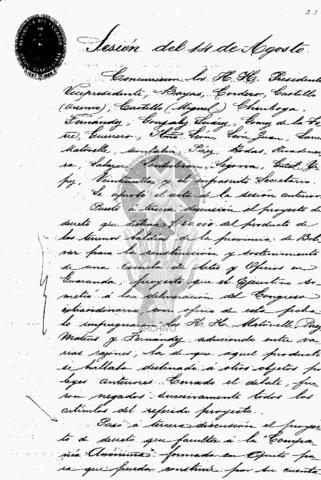 23
Sesión del 14 de Agosto.
Concurrieron los H.H. Presidente
Vicepresidente, Banjas, Cordero, Castillo
Castillo (Miguel) Chiriboga
Fernández, González Suárez, Gómez de la To-
rre, Guerrero, León, León Juan,
Matovelle, Páez, Rodas, Rivadenei-
ra, Salazar, Santistevan, Segovia,
y el infrascrito Secretario.
Se aprobó el acta de la sesión anterior.
Pasó á tercera discusión el proyecto de
decreto que destina del producto de
los terrenos baldíos de la provincia de Bolí-
var para la construcción y sostenimiento
de una Escuela de Artes y Oficios en
Guaranda; proyecto que el Ejecutivo so-
metió á la deliberación del Congreso
extraordinario con oficio de esta fecha
lo impugnaron los H.H. Matovelle, Páez
Mateus y Fernández aduciendo entre va-
rias razones, la de que aquel producto
se hallaba destinado á otros objetos por
leyes anteriores. Cerrado el debate, fue-
ron negados sucesivamente todos los
artículos del referido proyecto.
Pasó á tercera discusión el proyec-
to de decreto que faculta á la Compa-
ñía Anónima formada en Quito pa-
ra que pueda construir por su cuenta
ARCHIVO